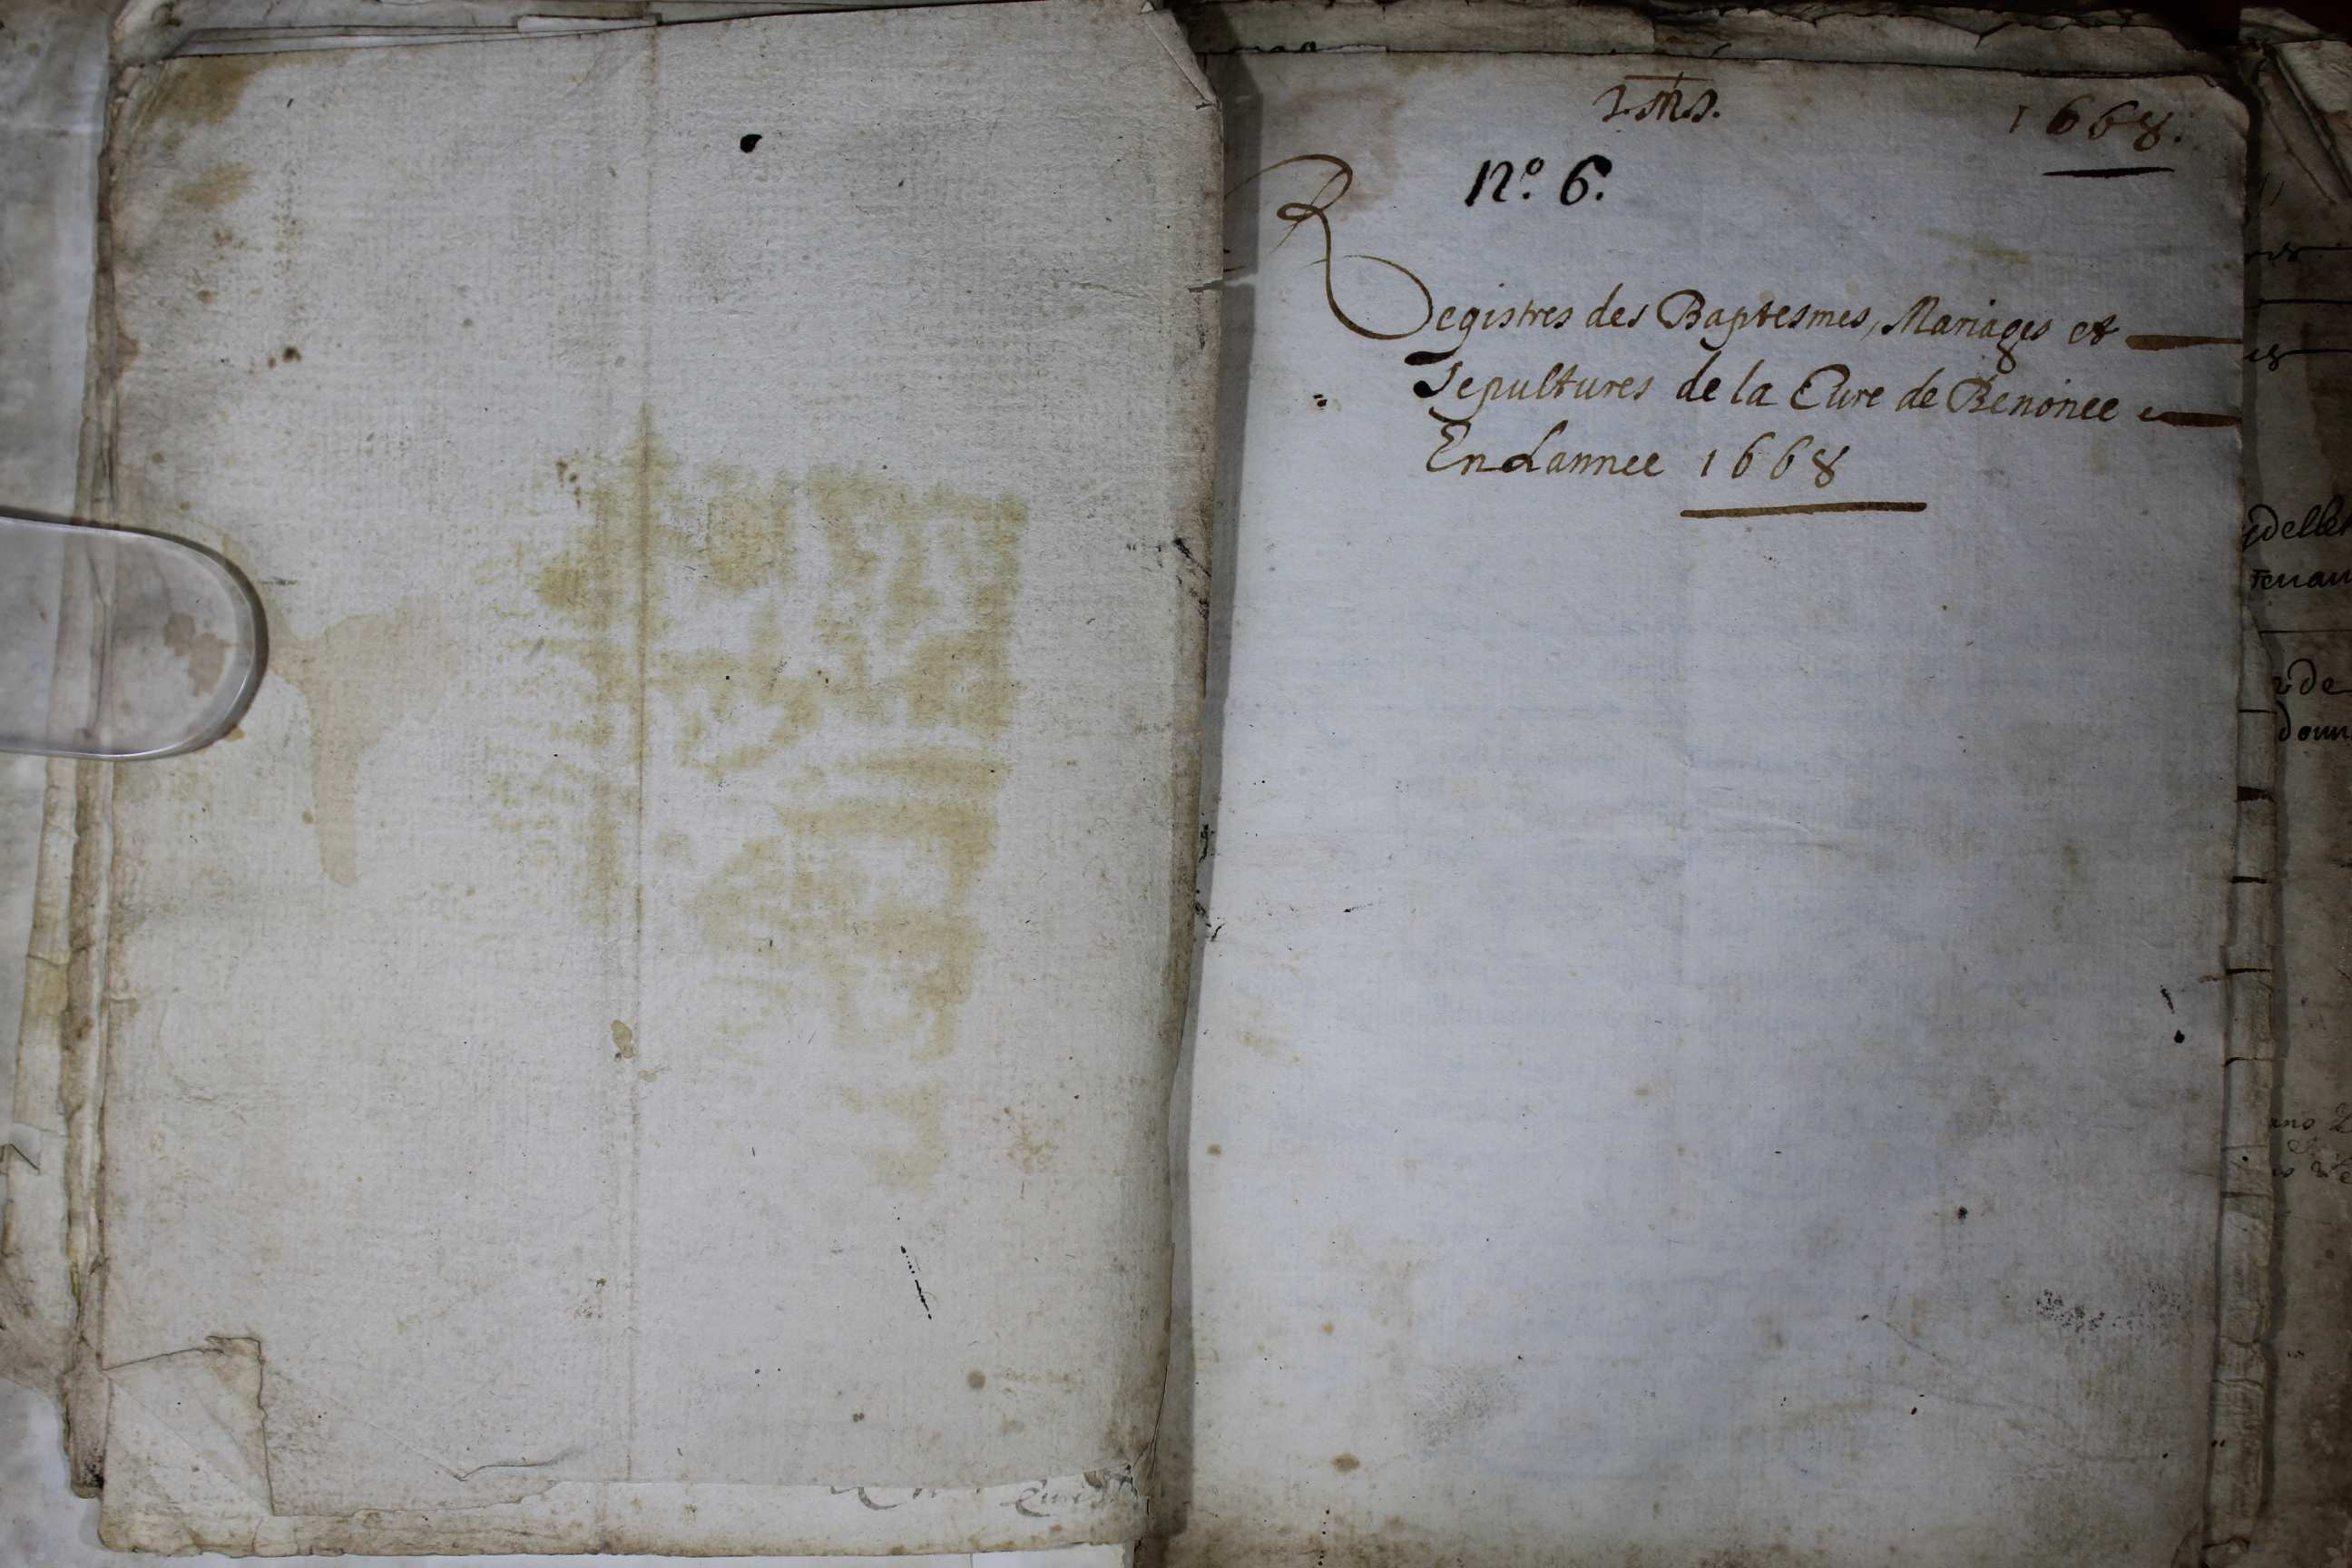 J.M.J.
1668.
N.º 6.
Registres des Baptesmes, Mariages et
Sepultures de la Cure de Benonce
En Lannee 1668